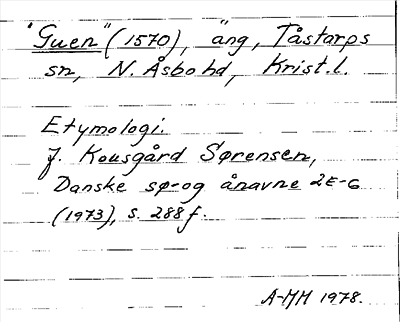 "Guen" (1570), äng, Tåstarps
sn, N. Åsbo hd, Krist.l.
Etymologi.
J. Kousgård Sørensen,
Danske sø- og ånavne 2E-G
(1973), s. 288 f.
A-MH 1978.